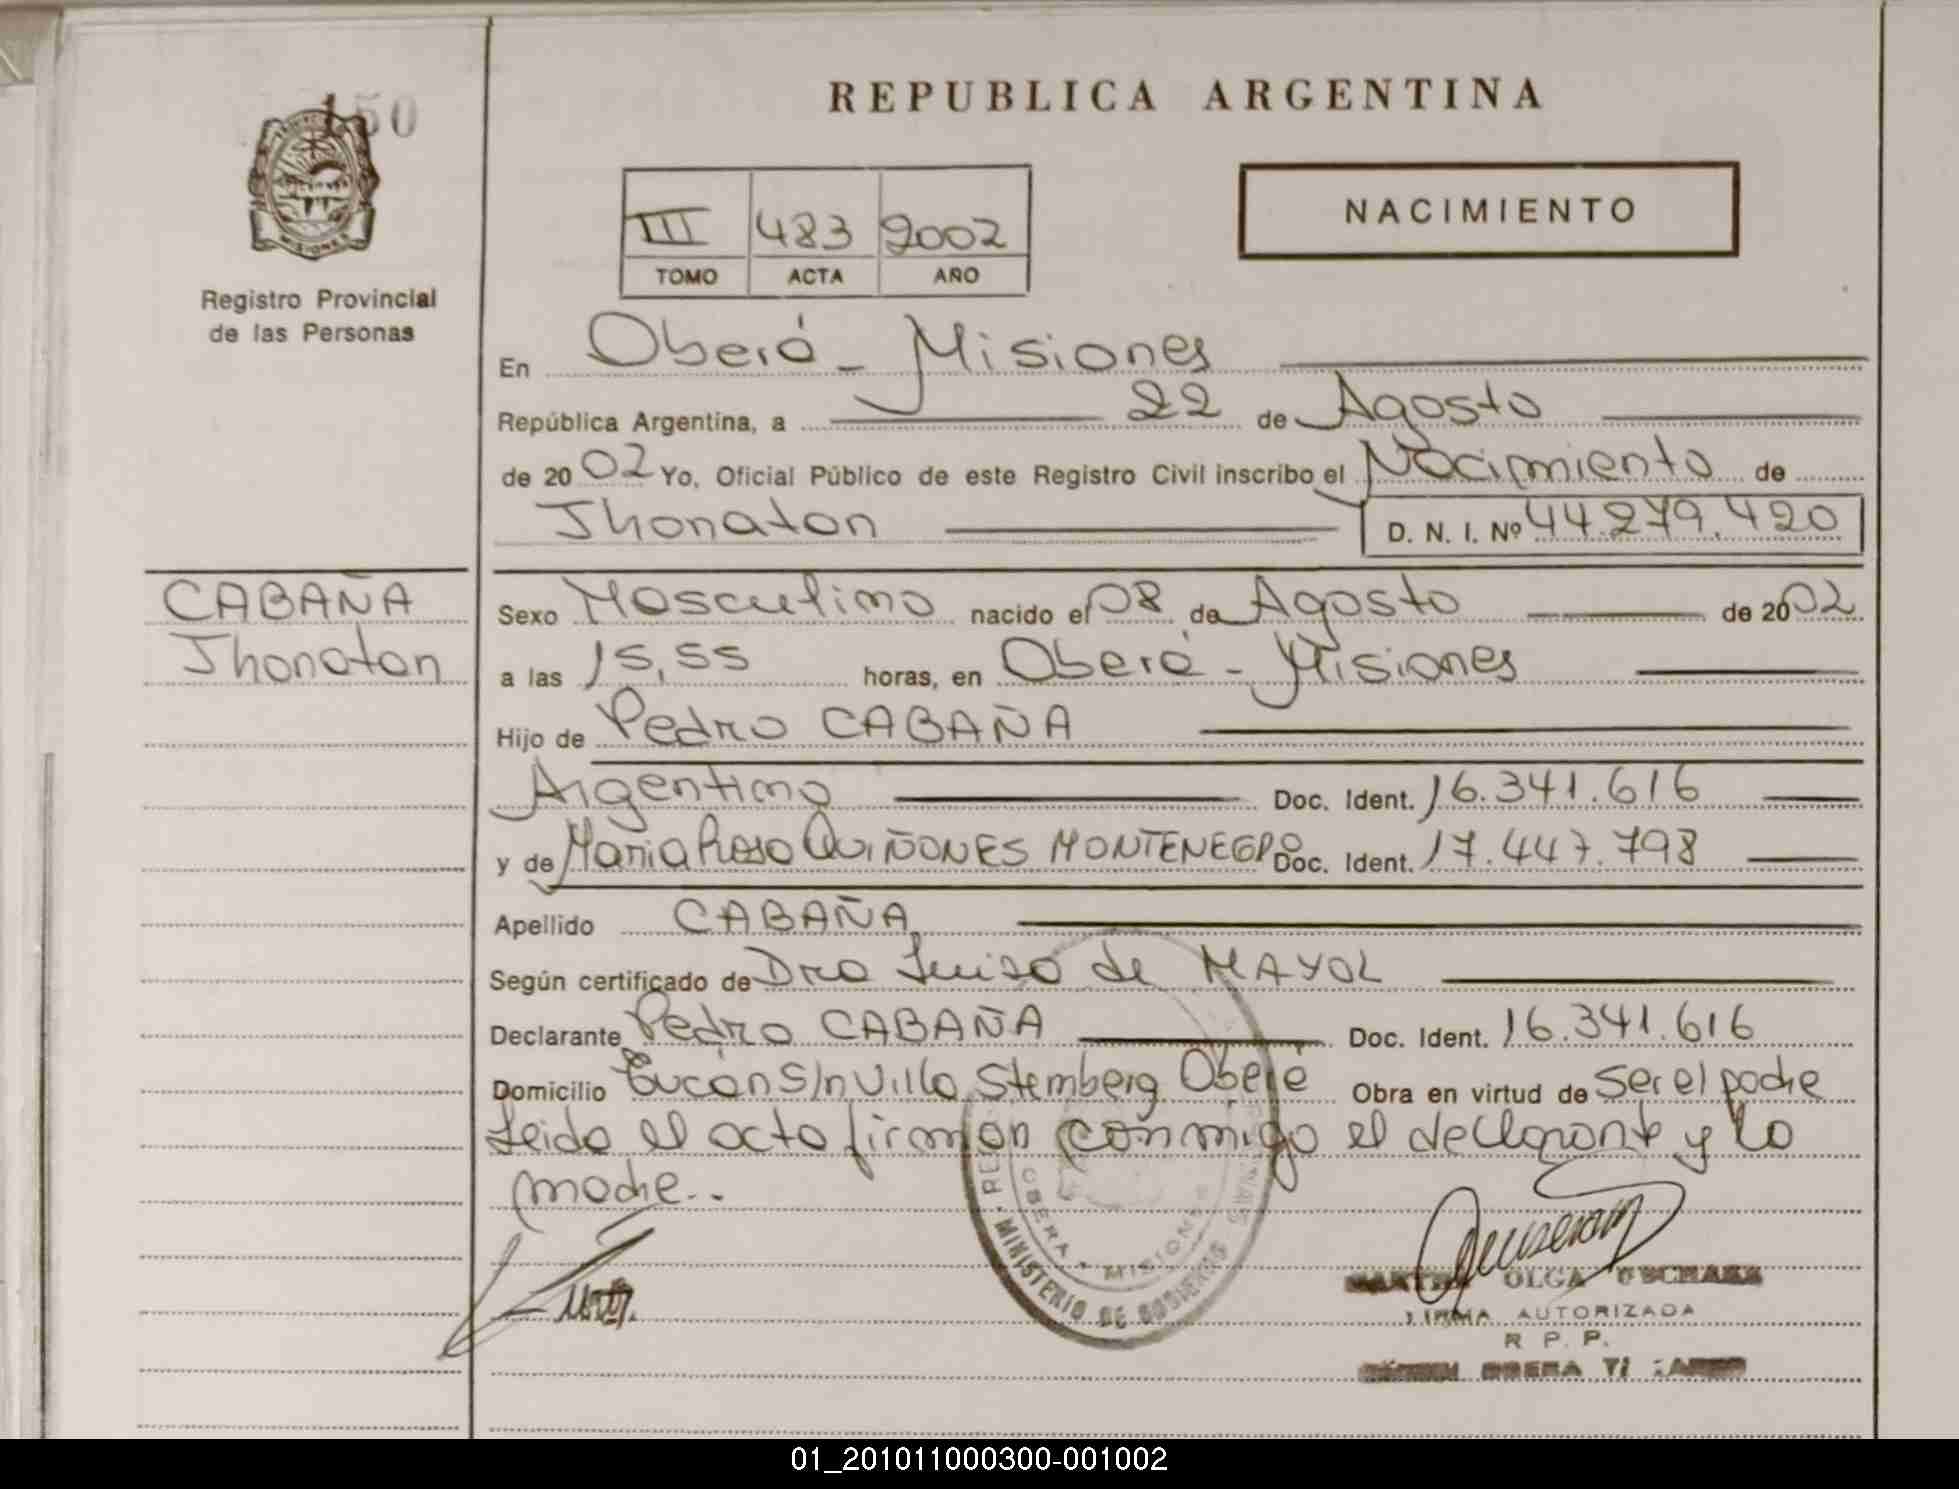 150
REPUBLICA ARGENTINA
MISIONES
Registro Provincial
de las Personas
III 483 2002
TOMO ACTA AÑO
NACIMIENTO
En Oberá - Misiones
República Argentina, a 22 de Agosto
de 20 02 Yo, Oficial Público de este Registro Civil inscribo el Nacimiento de
Jhonatan D. N. I. Nº 44.279.420
CABAÑA
Jhonatan
Sexo Masculino nacido el 08 de Agosto de 20 02
a las 15,55 horas, en Oberá - Misiones
Hijo de Pedro CABAÑA
Argentino Doc. Ident. 16.341.616
y de Maria Rosa QUIÑONES MONTENEGRO Doc. Ident. 17.447.798
Apellido CABAÑA
Según certificado de Dra Luisa de MAYOL
Declarante Pedro CABAÑA Doc. Ident. 16.341.616
Domicilio Tucán S/n Villa Stemberg Oberá Obra en virtud de Ser el padre
Leida el acta firman conmigo el declarante y la
madre..
MINISTERIO DE GOBIERNO
OBERA - MISIONES
OLGA
FIRMA AUTORIZADA
R. P. P.
01_201011000300-001002